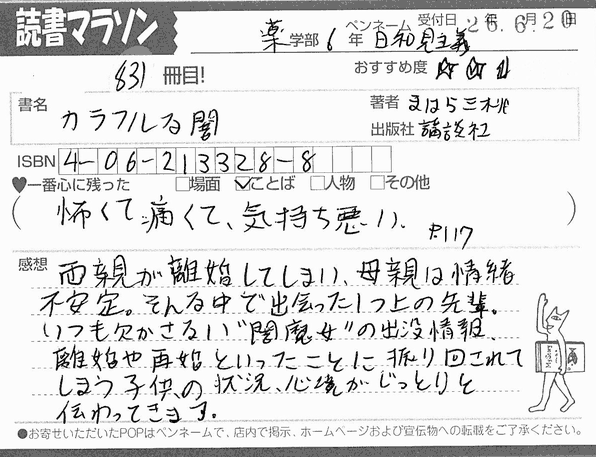 読書マラソン
薬学部 6年 ペンネーム 日和見主義 受付日 26年6月20日
831冊目! おすすめ度 ☆☆☆
書名 カラフルな闇
著者 まはら三桃
出版社 講談社
ISBN 4-06-213328-8
♥一番心に残った □場面 ☑ことば □人物 □その他
(怖くて、痛くて、気持ち悪い。 P117)
感想 両親が離婚してしまい、母親は情緒
不安定。そんな中で出会った1つ上の先輩。
いつも欠かさない"闇魔女"の出没情報、
離婚や再婚といったことに振り回されて
しまう子供の状況、心境がじっとりと
伝わってきます。
●お寄せいただいたPOPはペンネームで、店内で掲示、ホームページおよび宣伝物への転載をご了承ください。